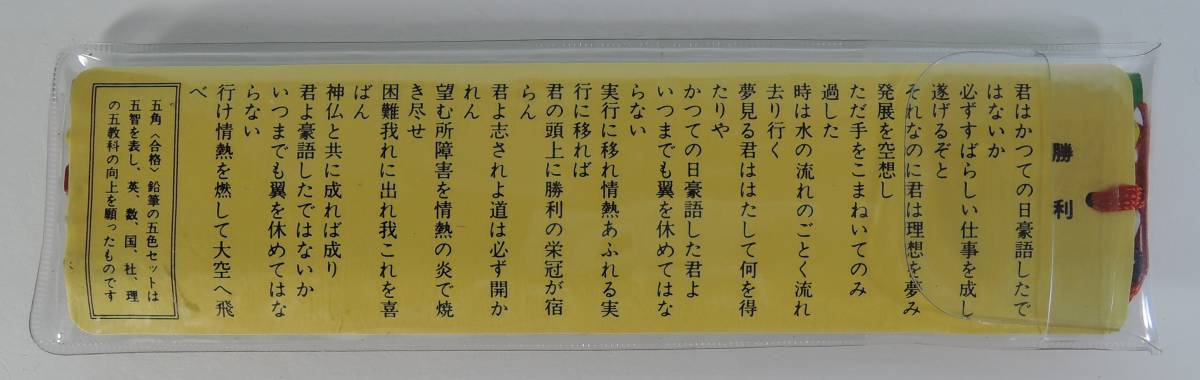 勝利
君はかつての日豪語したで
はないか
必ずすばらしい仕事を成し
遂げるぞと
それなのに君は理想を夢み
発展を空想し
ただ手をこまねいてのみ
過した
時は水の流れのごとく流れ
去り行く
夢見る君ははたして何を得
たりや
かつての日豪語した君よ
いつまでも翼を休めてはな
らない
実行に移れ情熱あふれる実
行に移れば
君の頭上に勝利の栄冠が宿
らん
君よ志されよ道は必ず開か
れん
望む所障害を情熱の炎で焼
き尽せ
困難我れに出れ我これを喜
ばん
神仏と共に成れば成り
君よ豪語したではないか
いつまでも翼を休めてはな
らない
行け情熱を燃して大空へ飛
べ
五角〈合格〉鉛筆の五色セットは
五智を表し、英、数、国、社、理
の五教科の向上を願ったものです